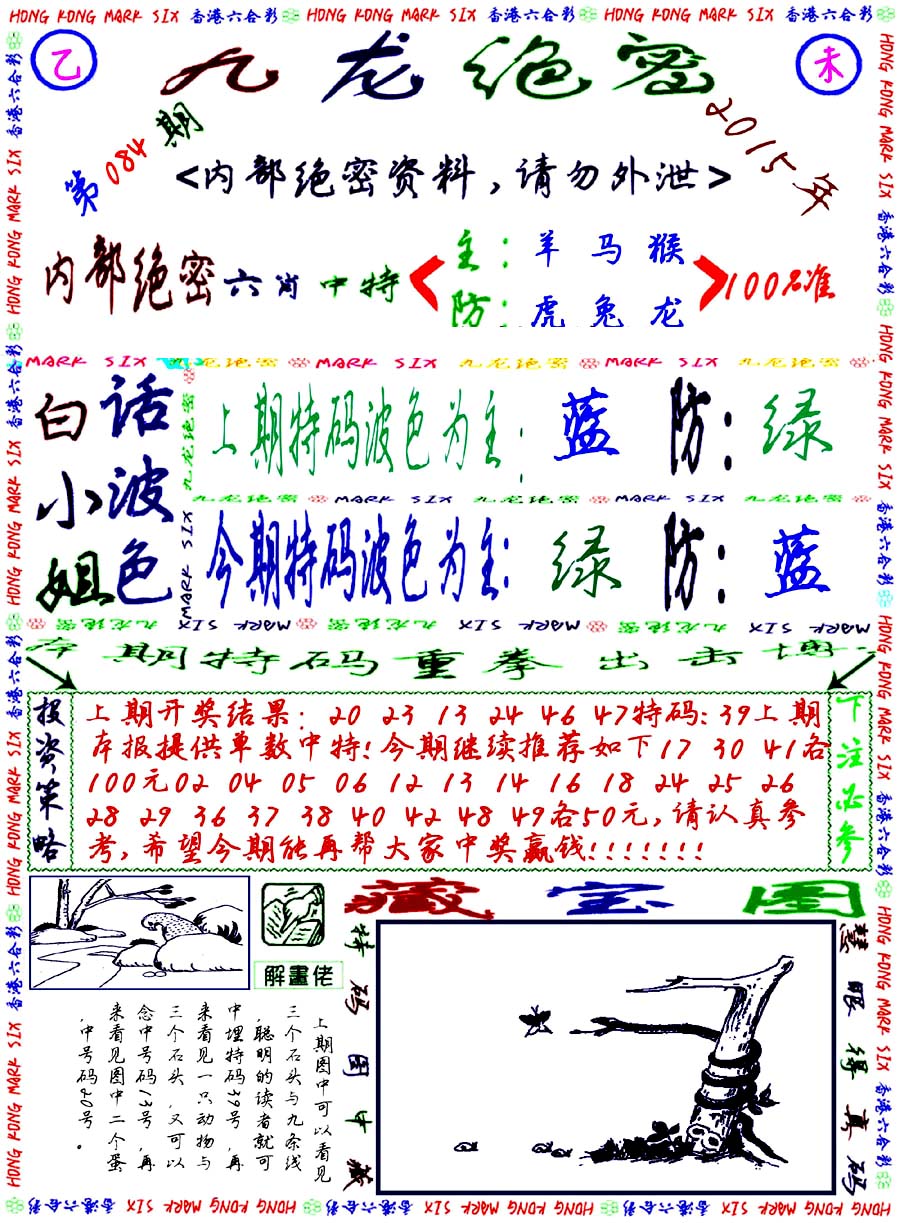 HONG KONG MARK SIX 香港六合彩 HONG KONG MARK SIX 香港六合彩 HONG KONG MARK SIX 香港六合彩
乙
九龙绝密
未
第084期
2015年
<内部绝密资料，请勿外泄>
内部绝密六肖中特
主：羊马猴
防：虎兔龙
100%准
MARK SIX 九龙绝密 MARK SIX 九龙绝密 MARK SIX 九龙绝密
白话
小波
姐色
上期特码波色为主：蓝 防：绿
九龙绝密 MARK SIX 九龙绝密 MARK SIX 九龙绝密
今期特码波色为主：绿 防：蓝
九龙绝密 MARK SIX 九龙绝密 MARK SIX 九龙绝密 MARK SIX
本期特码重拳出击博
投资策略
上期开奖结果：20 23 13 24 46 47特码：39上期
本报提供单数中特！今期继续推荐如下17 30 41各
100元02 04 05 06 12 13 14 16 18 24 25 26
28 29 36 37 38 40 42 48 49各50元，请认真参
考，希望今期能再帮大家中奖赢钱！！！！！！！
下注必参
解畫佬
藏宝图
上期图中可以看见
三个石头与九条线
，聪明的读者就可
中埋特码39号，再
来看见一只动物与
三个石头，又可以
念中号码13号，再
来看见图中二个蛋
，中号码20号。
特码图中藏
慧眼得真码
HONG KONG MARK SIX 香港六合彩 HONG KONG MARK SIX 香港六合彩 HONG KONG MARK SIX 香港六合彩